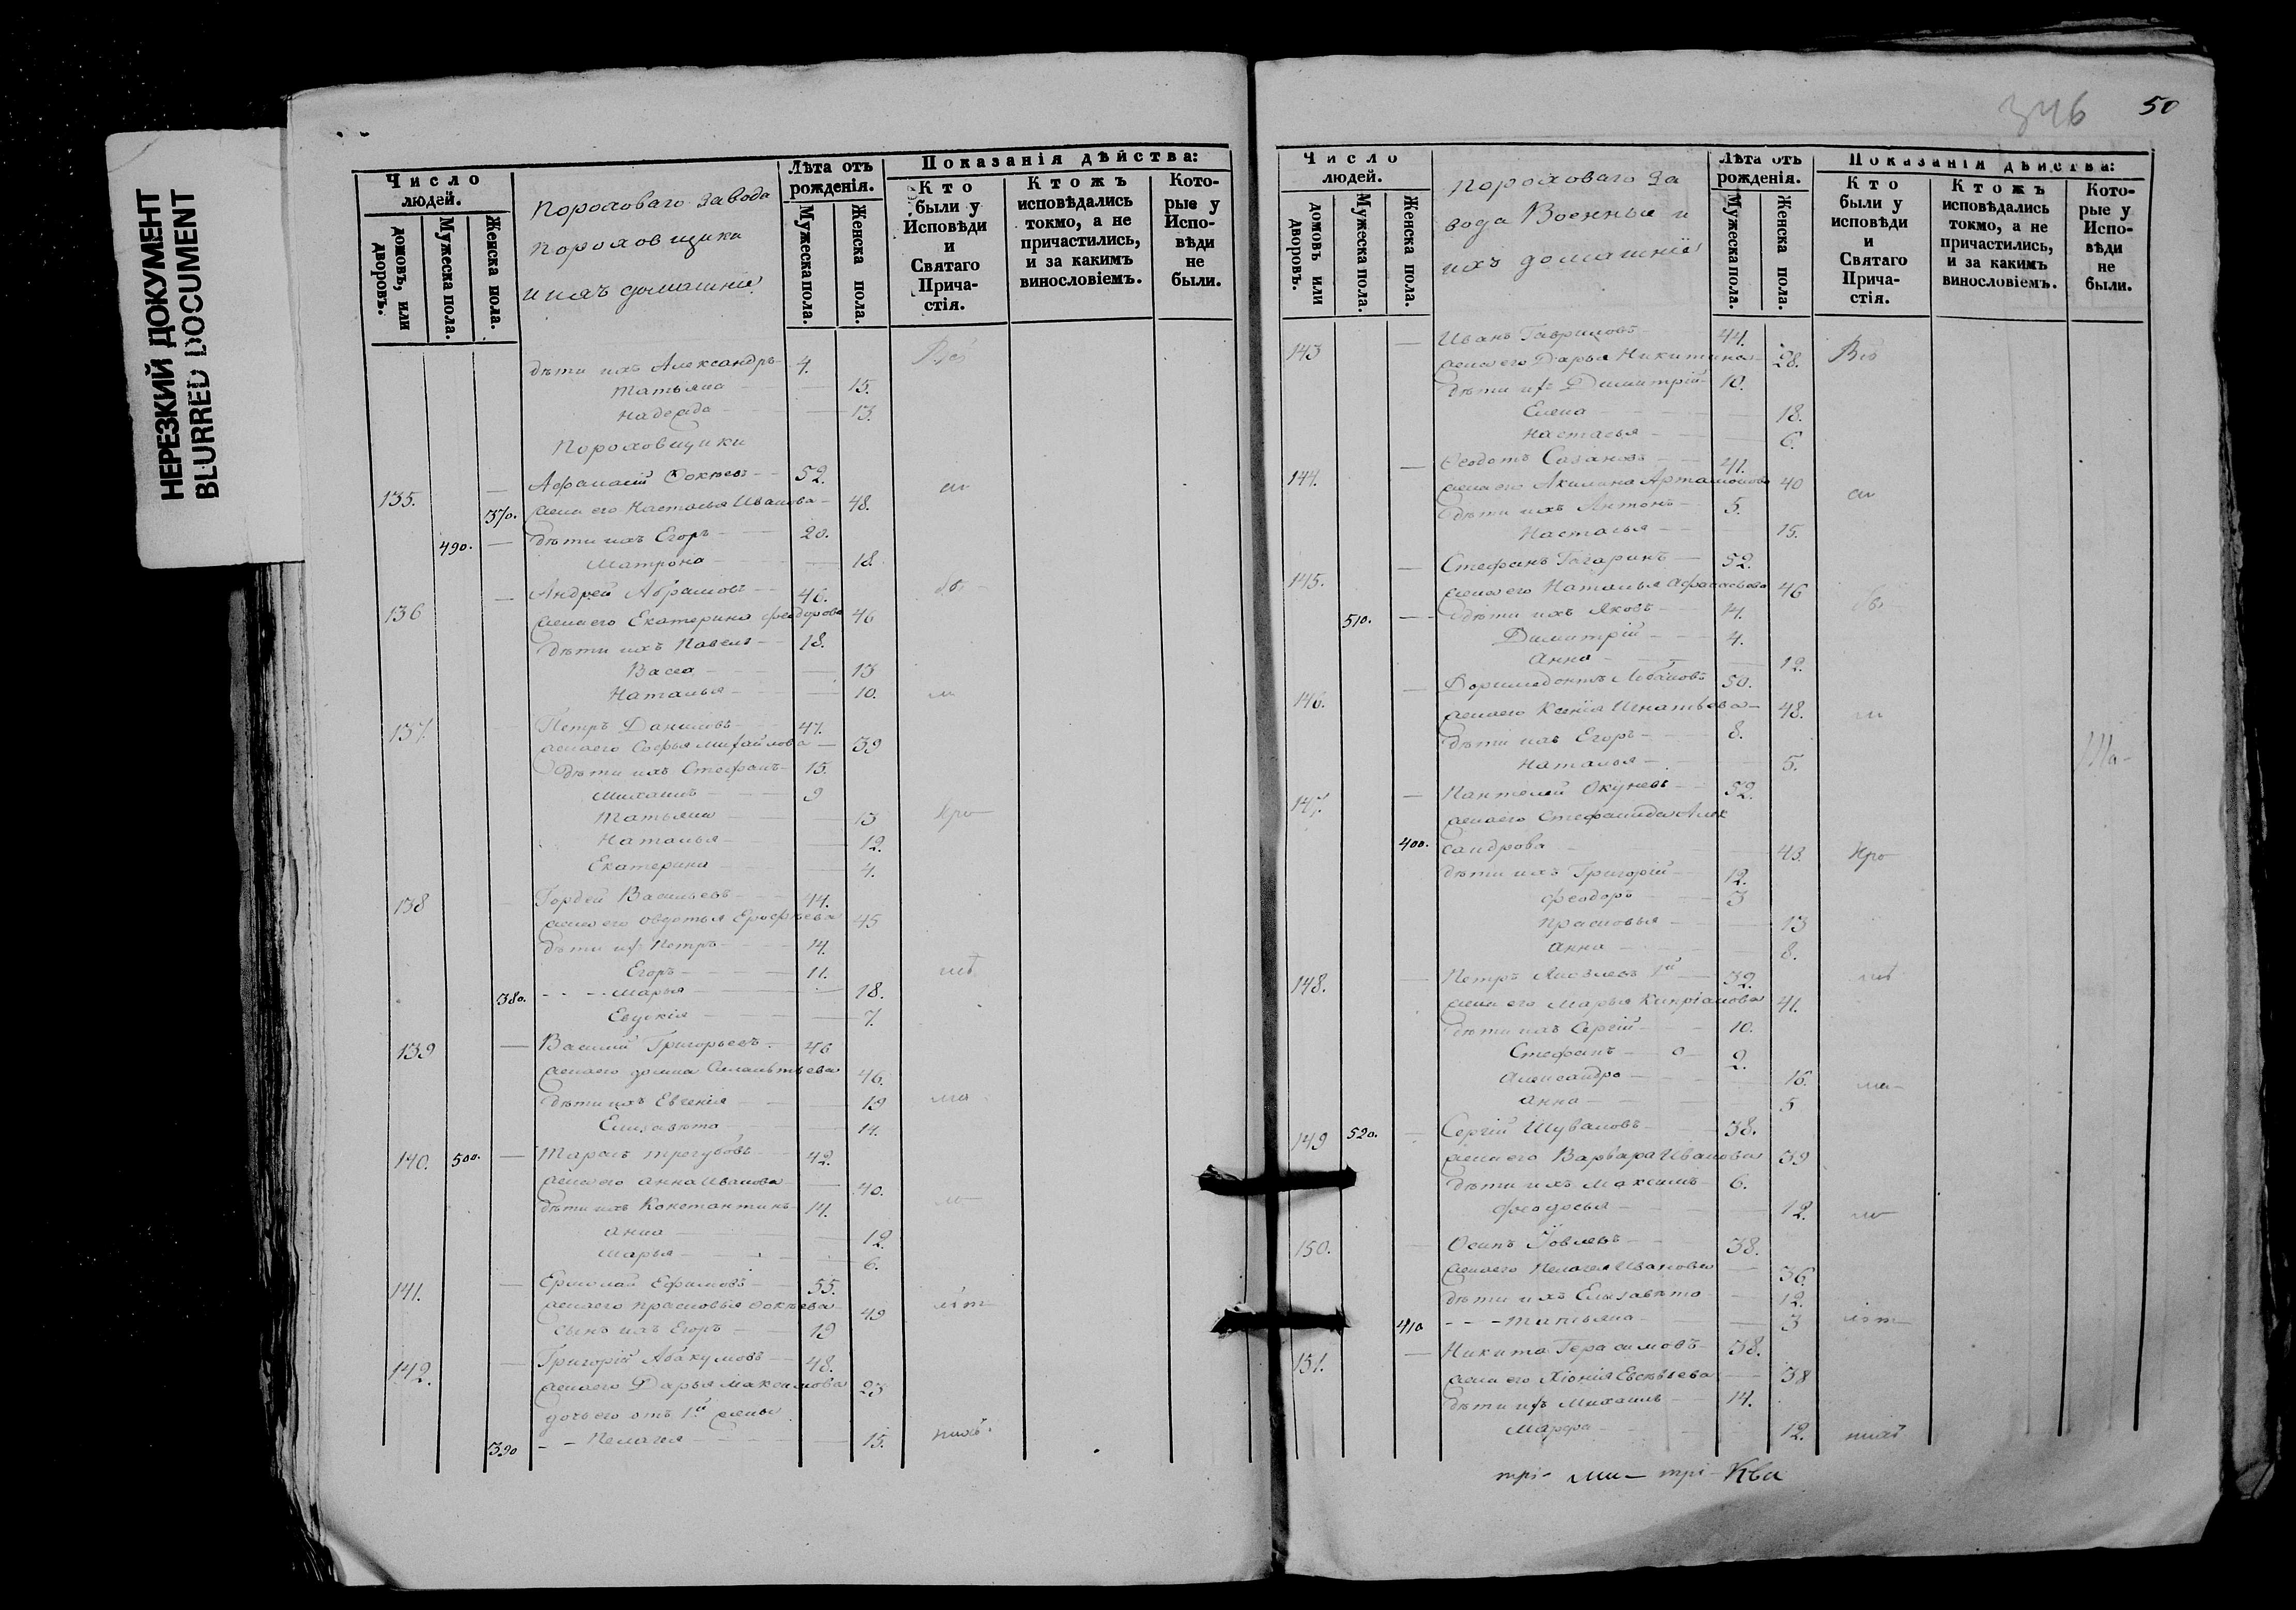 НЕРЕЗКИЙ ДОКУМЕНТ
BLURRED DOCUMENT
Число людей.
домовъ, или дворовъ.
Мужеска пола.
Женска пола.
Пороховаго завода
Пороховщики
и ихъ домашніе
Лѣта отъ рожденія.
Мужеска пола.
Женска пола.
Показанія дѣйства:
Кто были у Исповѣди и Святаго Причастія.
Ктожъ исповѣдались токмо, а не причастились, и за какимъ винословіемъ.
Которые у Исповѣди не были.
дѣти ихъ Александръ 4. Всѣ
Татьяна 15.
Надежда 13.
Пороховщики
135. Афанасій Фокѣевъ 52.
370. жена его Настасья Иванова 48.
490. дѣти ихъ Егоръ 20.
Матрона 18.
136 Андрей Абрамовъ 46.
жена его Екатерина Феодорова 46
дѣти ихъ Павелъ 18.
Васса 13
Наталья 10.
137. Петръ Даниловъ 47.
жена его Софья Михайлова 39
дѣти ихъ Стефанъ 15.
Михаилъ 9
Татьяна 13
Наталья 12.
Екатерина 4.
138 Гордей Васильевъ 44.
жена его Овдотья Ерофѣева 45
дѣти их Петръ 14.
Егоръ 11.
380. Марья 18.
Евдокія 7.
139 Василій Григорьевъ 46
жена его Домна Силантьева 46.
дѣти ихъ Евгенія 19
Елизавета 14.
140. 500. Тарасъ Трегубовъ 42.
жена его Анна Иванова 40.
дѣти ихъ Константинъ 14.
Анна 12.
Марья 6.
141. Ермолай Ефимовъ 55.
жена его Прасковья Фокѣева 49
сынъ ихъ Егоръ 19
142. Григорій Абакумовъ 48.
жена его Дарья Максимова 23
дочь его отъ 1й жены
390 Пелагея 15.
346 50
Число людей.
домовъ или дворовъ.
Мужеска пола.
Женска пола.
Пороховаго за
вода Военные и
ихъ домашніе
Лѣта отъ рожденія.
Мужеска пола.
Женска пола.
Показанія дѣйства:
Кто были у исповѣди и Святаго Причастія.
Ктожъ исповѣдались токмо, а не причастились, и за какимъ винословіемъ.
Которые у Исповѣди не были.
143 Иванъ Гавриловъ 44.
жена его Дарья Никитина 28. Всѣ
дѣти их Димитрій 10.
Елена 18.
Настасья 6.
144. Феодотъ Сазановъ 41.
жена его Акилина Артамонова 40
дѣти ихъ Антонъ 5.
Настасья 15.
145. Стефанъ Гагаринъ 52.
жена его Наталья Афанасьева 46
510. дѣти ихъ Яковъ 14.
Димитрій 4.
Анна 12.
146. Доримедонтъ Ивановъ 50.
жена его Ксенія Игнатьева 48.
дѣти ихъ Егоръ 8.
Наталья 5.
147. Пантелей Окуневъ 52.
жена его Стефанида Алек
400. сандрова 43.
дѣти ихъ Григорій 12.
Феодоръ 3
Прасковья 13
Анна 8.
148. Петръ Яковлевъ 1й 39.
жена его Марья Кипріанова 41.
дѣти ихъ Сергій 10.
Стефанъ 2.
Александра 16.
Анна 5
149 520. Сергій Шуваловъ 38.
жена его Варвара Иванова 39
дѣти ихъ Максимъ 6.
Феодосья 12.
150. Осипъ Іовлевъ 38.
жена его Пелагея Иванова 36.
дѣти ихъ Елизавета 12.
410 Татьяна 3
151. Никита Герасимовъ 38.
жена его Хіонія Евсѣвьева 38
дѣти их Михаилъ 14.
Марфа 12.